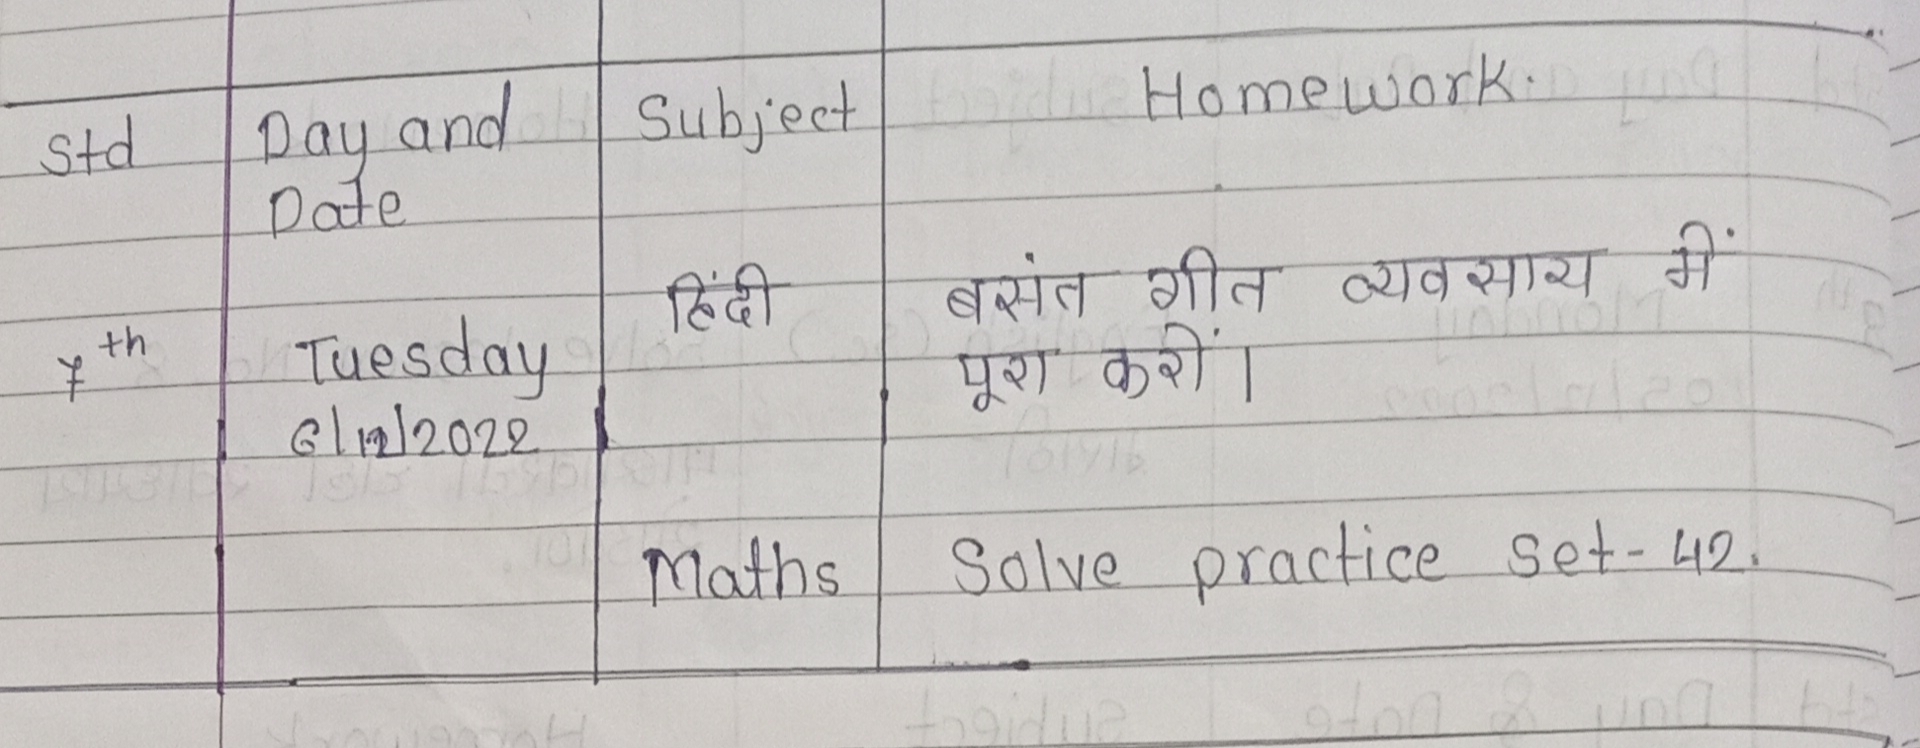 Std Day and Subject Homework.
Date
हिंदी बसंत गीत व्यवसाय में
7th Tuesday पूरा करों।
6/12/2022
Maths Solve practice set-42.